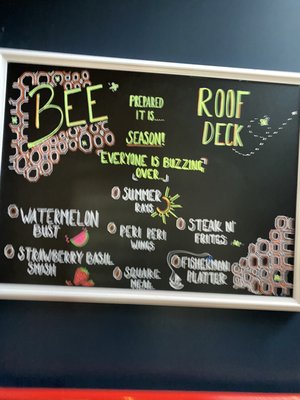 BEE
PREPARED
IT IS....
SEASON!
ROOF
DECK
"EVERYONE IS BUZZING
OVER..."
SUMMER
RAYS
WATERMELON
BUST
PERI PERI
WINGS
STEAK N'
FRITES
STRAWBERRY BASIL
SMASH
SQUARE
MEAL
FISHERMAN
PLATTER